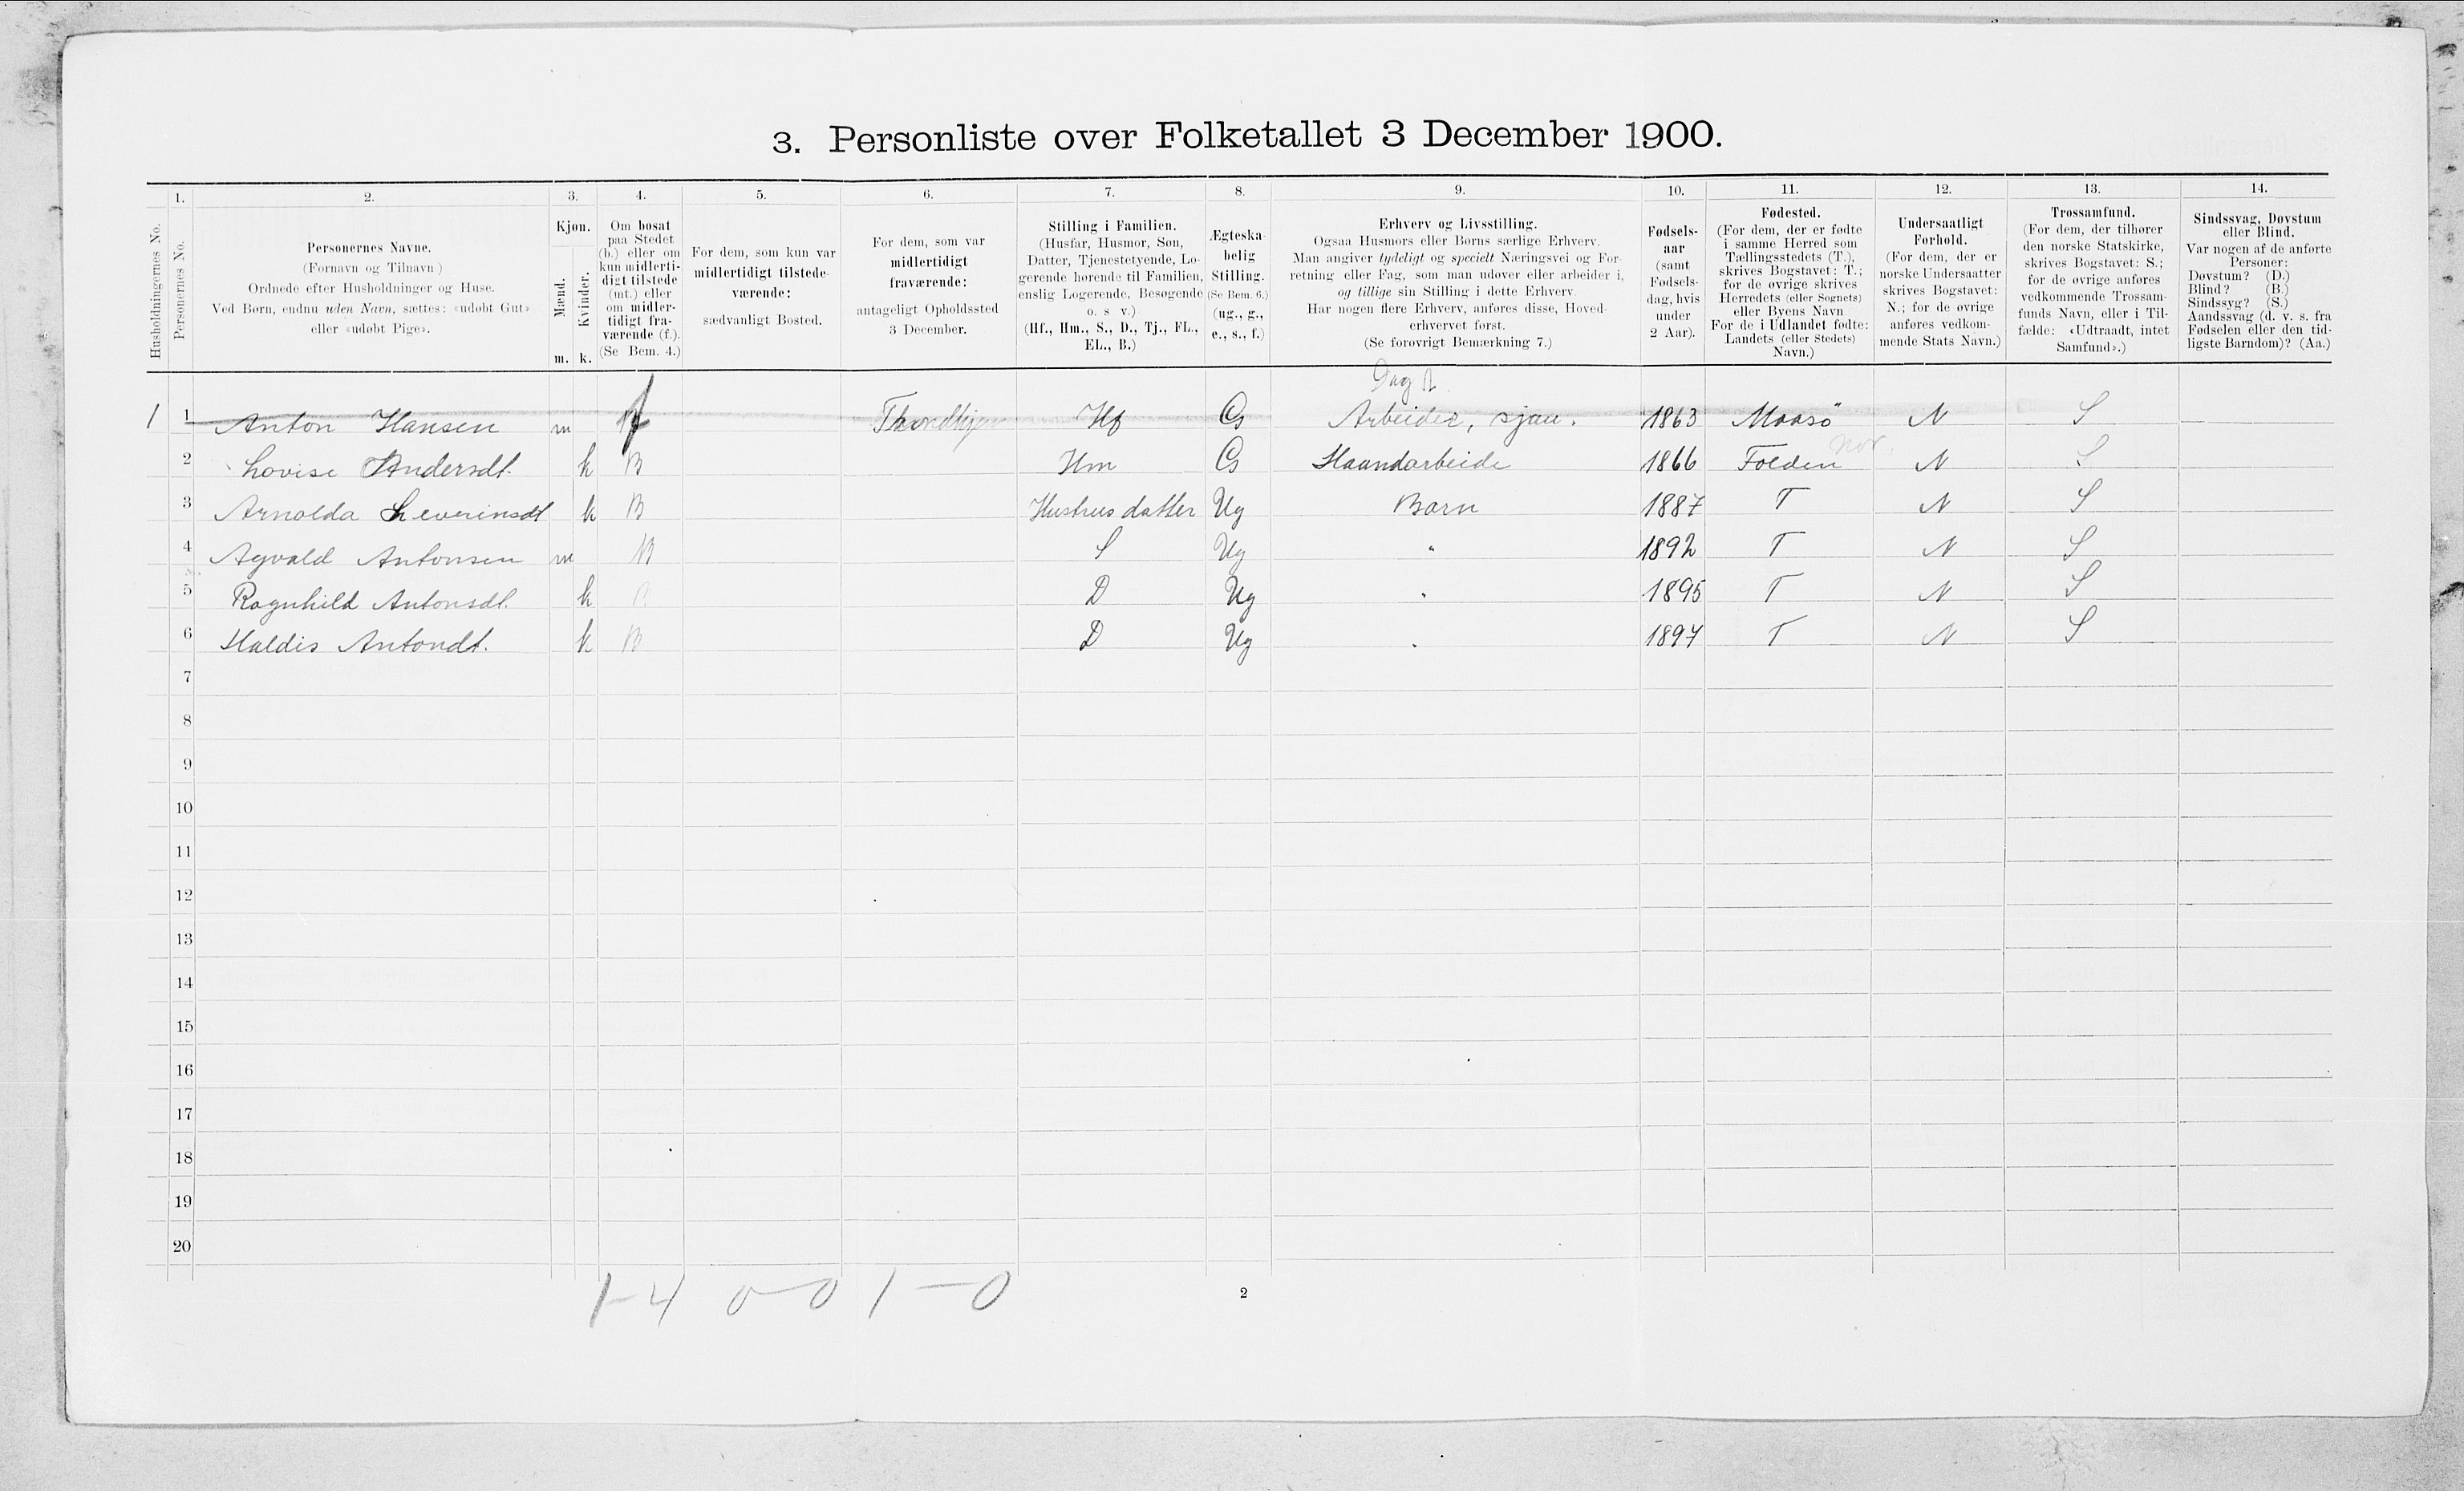 3. Personliste over Folketallet 3 December 1900.
Husholdningernes No.
1. Personernes No.
2. Personernes Navne.
(Fornavn og Tilnavn)
Ordnede efter Husholdninger og Huse.
Ved Børn, endnu uden Navn, sættes: «udøbt Gut»
eller «udøbt Pige».
3. Kjøn.
Mænd. Kvinder.
m. k.
4. Om bosat
paa Stedet
(b.) eller om
kun midlerti-
digt tilstede
(mt.) eller
om midler-
tidigt fra-
værende (f.).
(Se Bem. 4.)
5. For dem, som kun var
midlertidigt tilstede-
værende:
sædvanligt Bosted.
6. For dem, som var
midlertidigt
fraværende:
antageligt Opholdssted
3 December.
7. Stilling i Familien.
(Husfar, Husmor, Søn,
Datter, Tjenestetyende, Lo-
gerende hørende til Familien,
enslig Logerende, Besøgende
o. s v.)
(Hf., Hm., S., D., Tj., FL.,
EL., B.)
8. Ægteska-
belig
Stilling.
(Se Bem. 6.)
(ug., g.,
e., s., f.)
9. Erhverv og Livsstilling.
Ogsaa Husmors eller Børns særlige Erhverv.
Man angiver tydeligt og specielt Næringsvei og For-
retning eller Fag, som man udøver eller arbeider i,
og tillige sin Stilling i dette Erhverv.
Har nogen flere Erhverv, anføres disse, Hoved-
erhvervet først.
(Se forøvrigt Bemærkning 7.)
10. Fødsels-
aar
(samt
Fødsels-
dag, hvis
under
2 Aar).
11. Fødested.
(For dem, der er fødte
i samme Herred som
Tællingsstedets (T.),
skrives Bogstavet: T.;
for de øvrige skrives
Herredets (eller Sognets)
eller Byens Navn
For de i Udlandet fødte:
Landets (eller Stedets)
Navn.)
12. Undersaatligt
Forhold.
(For dem, der er
norske Undersaatter
skrives Bogstavet:
N.; for de øvrige
anføres vedkom-
mende Stats Navn.)
13. Trossamfund.
(For dem, der tilhører
den norske Statskirke,
skrives Bogstavet: S.;
for de øvrige anføres
vedkommende Trossam-
funds Navn, eller i Til-
fælde: «Udtraadt, intet
Samfund».)
14. Sindssvag, Døvstum
eller Blind.
Var nogen af de anførte
Personer:
Døvstum? (D.)
Blind? (B.)
Sindssyg? (S.)
Aandssvag (d. v. s. fra
Fødselen eller den tid-
ligste Barndom)? (Aa.)
Dag
1 1 Anton Hansen m f Throndhjem Hf G Arbeider, sjau. 1863 Maasö N S
nor.
2 Lovise Andersdt. k B Hm G Haandarbeide 1866 Folden N S
3 Arnolda Severinsdt k B Hustrus datter Ug Barn 1887 T N S
4 Agvald Antonsen m B S Ug " 1892 T N S
5 Ragnhild Antonsdt. k B D Ug " 1895 T N S
6 Haldis Antondt. k B D Ug " 1897 T N S
7
8
9
10
11
12
13
14
15
16
17
18
19
20
1-4 0-0 1-0
2